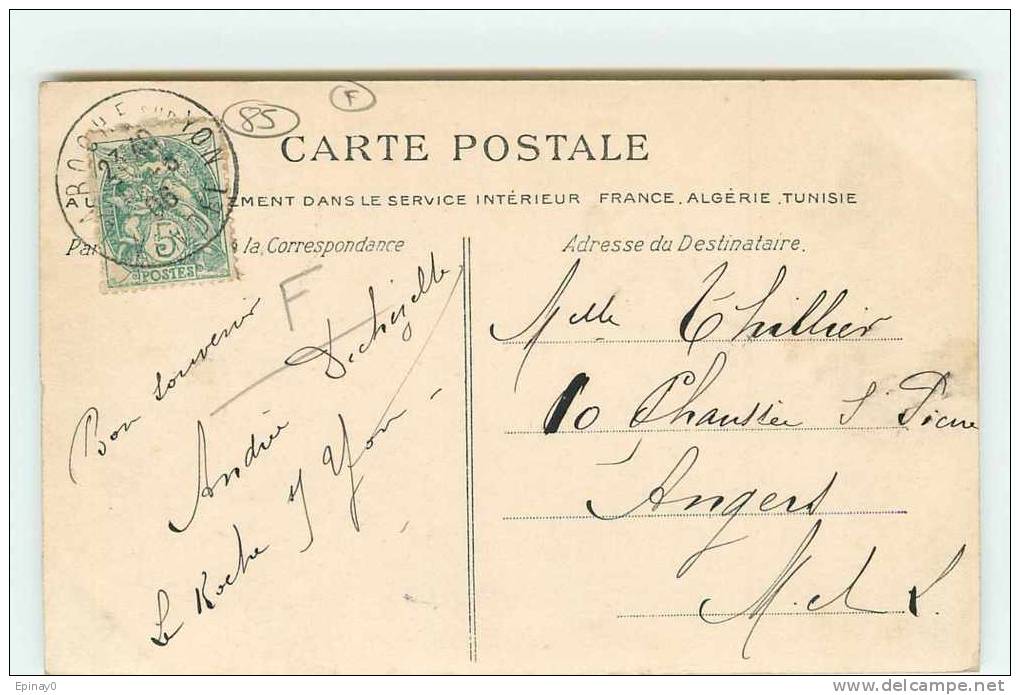 85
F
LA ROCHE SUR YON
5
POSTES
CARTE POSTALE
EMENT DANS LE SERVICE INTÉRIEUR FRANCE, ALGÉRIE, TUNISIE
à la Correspondance
Adresse du Destinataire.
F
Bon souvenir
Andrée
La Roche s/ Yon
Melle Thillier
10 Chaussée St Pierre
Angers
M. et L.
Epinay0
www.delcampe.net